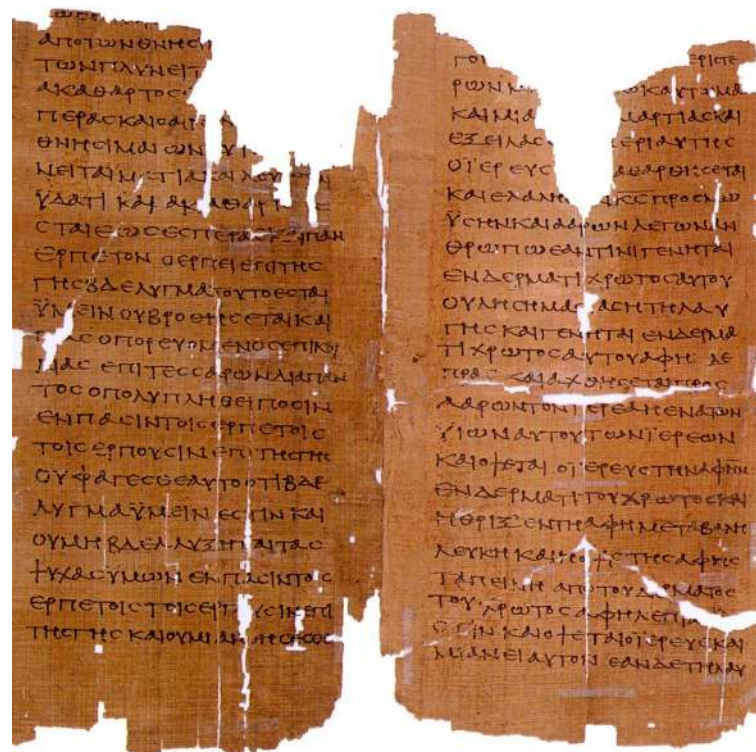 ΑΠΟΤΩΝΘΝΗΣΙ
ΤΩΝΠΛΥΝΕΙΤ
ΑΚΑΘΑΡΤΟΣ
ΠΕΡΑΣΚΑΙΟΑΙΡ
ΘΝΗΣΙΜΑΙΩΝ
ΝΕΙΤΑΙ
ΫΔΑΤΙ ΚΑΙ ΑΚΑΘΑΡΤΟΣ
ΣΤΑΙΕΩΣΕΣΠΕΡΑΣΚΑΙΠΑΝ
ΕΡΠΕΤΟΝ ΟΕΡΠΕΙΕΠΙΤΗΣ
ΓΗΣΒΔΕΛΥΓΜΑΤΟΥΤΟΕΣΤΑΙ
ΫΜΕΙΝΟΥΒΡΩΘΗΣΕΤΑΙΚΑΙ
ΠΑΣΟΠΟΡΕΥΟΜΕΝΟΣΕΠΙΚΟΙ
ΛΙΑΣ ΕΠΙΤΕΣΣΑΡΩΝΔΙΑΠΑΝ
ΤΟΣΟΠΟΛΥΠΛΗΘΕΙΠΟΣΙΝ
ΕΝΠΑΣΙΝΤΟΙΣΕΡΠΕΤΟΙΣ
ΤΟΙΣΕΡΠΟΥΣΙΝΕΠΙΤΗΣΓΗΣ
ΟΥΦΑΓΕΣΘΕΑΥΤΟΟΤΙΒΔΕ
ΛΥΓΜΑΫΜΕΙΝΕΣΤΙΝΚΑΙ
ΟΥΜΗΒΔΕΛΛΥΞΗΤΑΙΤΑΣ
ΨΥΧΑΣΥΜΩΝΕΝΠΑΣΙΝΤΟΣ
ΕΡΠΕΤΟΙΣΤΟΙΣΕΡΠΟΥΣΙΝΕΠΙ
ΤΗΣΓΗΣΚΑΙΟΥΜΙΑΝΘΗΣΕΣΘΕ
ΓΟΙ ΕΡΙΣΤΕ
ΡΩΝΜ ΩΚΑΥΤΩΜΑ
ΚΑΙΜΙΑ ΜΑΡΤΙΑΣΚΑΙ
ΕΞΕΙΛΑΣ ΠΕΡΙΑΥΤΗΣ
ΟΪΕΡΕΥΣ ΚΑΘΑΡΘΗΣΕΤΑΙ
ΚΑΙΕΛΑΛΗ ΚΣΠΡΟΣΜΩ
ΫΣΗΝΚΑΙΑΑΡΩΝΛΕΓΩΝΑΝ
ΘΡΩΠΩΕΑΝΤΙΝΙΓΕΝΗΤΑΙ
ΕΝΔΕΡΜΑΤΙΧΡΩΤΟΣΑΥΤΟΥ
ΟΥΛΗΣΗΜΑΣΙΑΣΗΤΗΛΑΥ
ΓΗΣΚΑΙΓΕΝΗΤΑΙΕΝΔΕΡΜΑ
ΤΙΧΡΩΤΟΣΑΥΤΟΥΑΦΗ ΛΕ
ΠΡΑΣ ΚΑΙΑΧΘΗΣΕΤΑΙΠΡΟΣ
ΑΑΡΩΝΤΟΝΪΕΡΕΑΗΕΝΑΤΩΝ
ΫΙΩΝΑΥΤΟΥΤΩΝΪΕΡΕΩΝ
ΚΑΙΟΨΕΤΑΙΟΪΕΡΕΥΣΤΗΝΑΦΗΝ
ΕΝΔΕΡΜΑΤΙΤΟΥΧΡΩΤΟΣΚΑΙ
ΗΘΡΙΞΕΝΤΗΑΦΗΜΕΤΑΒΑΛΗ
ΛΕΥΚΗΚΑΙΗΟΨΙΣΤΗΣΑΦΗΣ
ΤΑΠΕΙΝΗΑΠΟΤΟΥΔΕΡΜΑΤΟΣ
ΤΟΥΧΡΩΤΟΣΑΦΗΛΕΠΡΑΣ
ΣΤΙΝΚΑΙΟΨΕΤΑΙΟΪΕΡΕΥΣΚΑΙ
ΜΙΑΝΕΙΑΥΤΟΝΕΑΝΔΕΤΗΛΑΥ